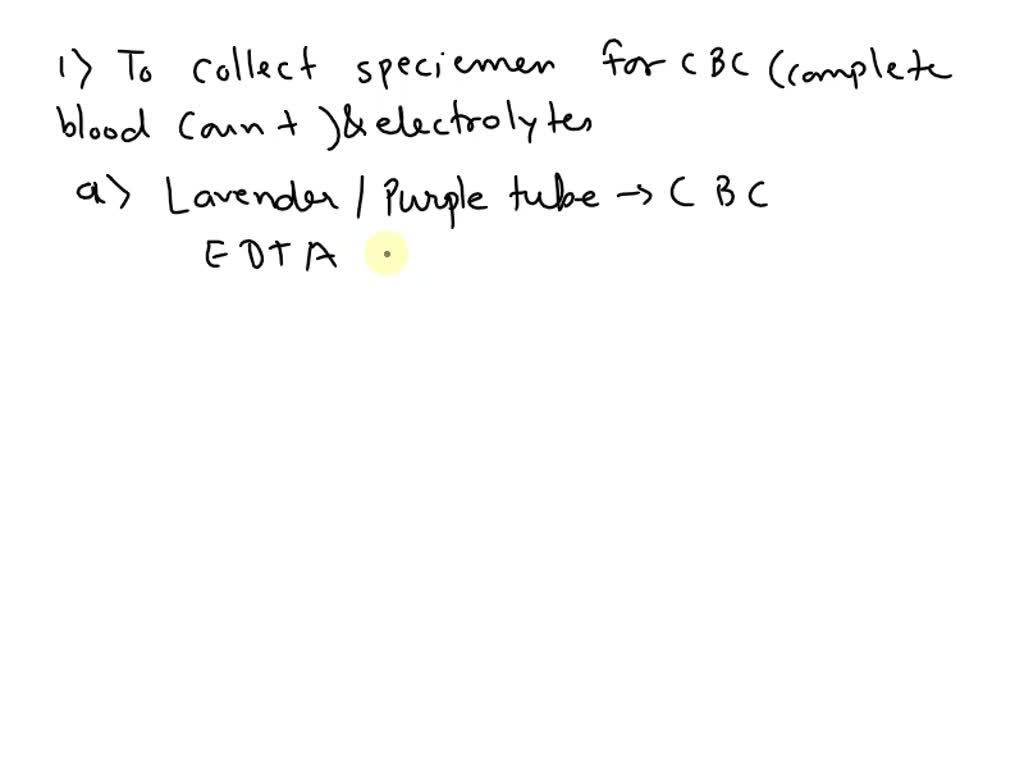 1> To collect speciemen for CBC (complete
blood Count) & electrolytes
a> Lavender / Purple tube → CBC
EDTA